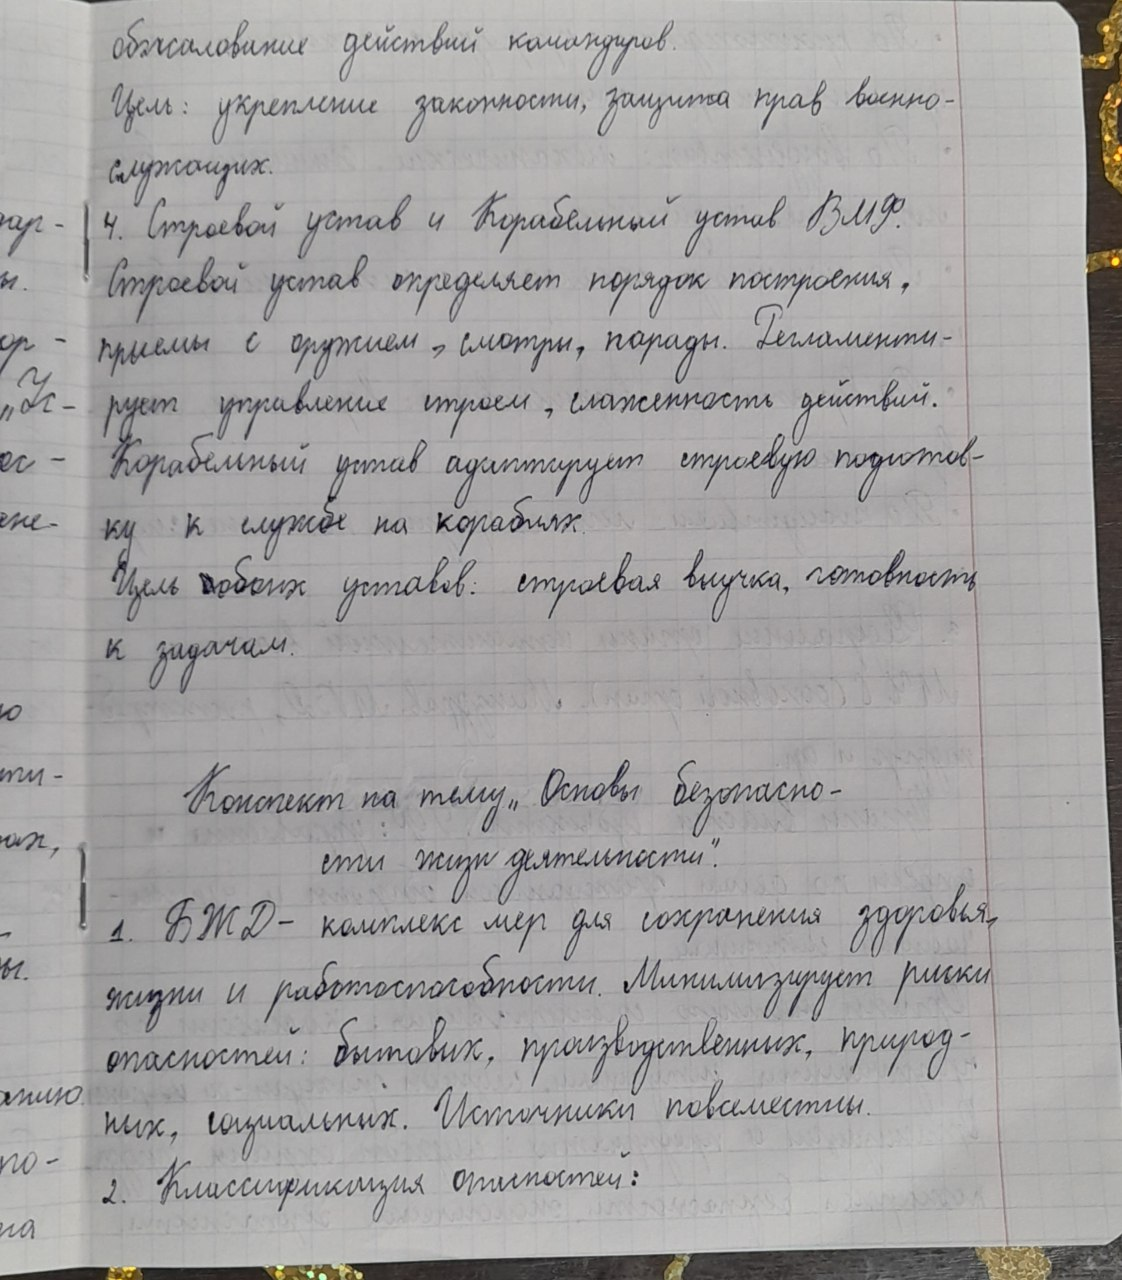 обжалование действий командиров.
Цель: укрепление законности, защита прав военно-
служащих.
4. Строевой устав и Корабельный устав ВМФ.
Строевой устав определяет порядок построения,
приемы с оружием, смотры, парады. Регламенти-
рует управление строем, слаженность действий.
Корабельный устав адаптирует строевую подготов-
ку к службе на кораблях.
Цель обоих уставов: строевая выучка, готовность
к задачам.
Конспект на тему „Основы безопасно-
сти жизнедеятельности".
1. БЖД - комплекс мер для сохранения здоровья,
жизни и работоспособности. Минимизирует риски
опасностей: бытовых, производственных, природ-
ных, социальных. Источники повсеместны.
2. Классификация опасностей: